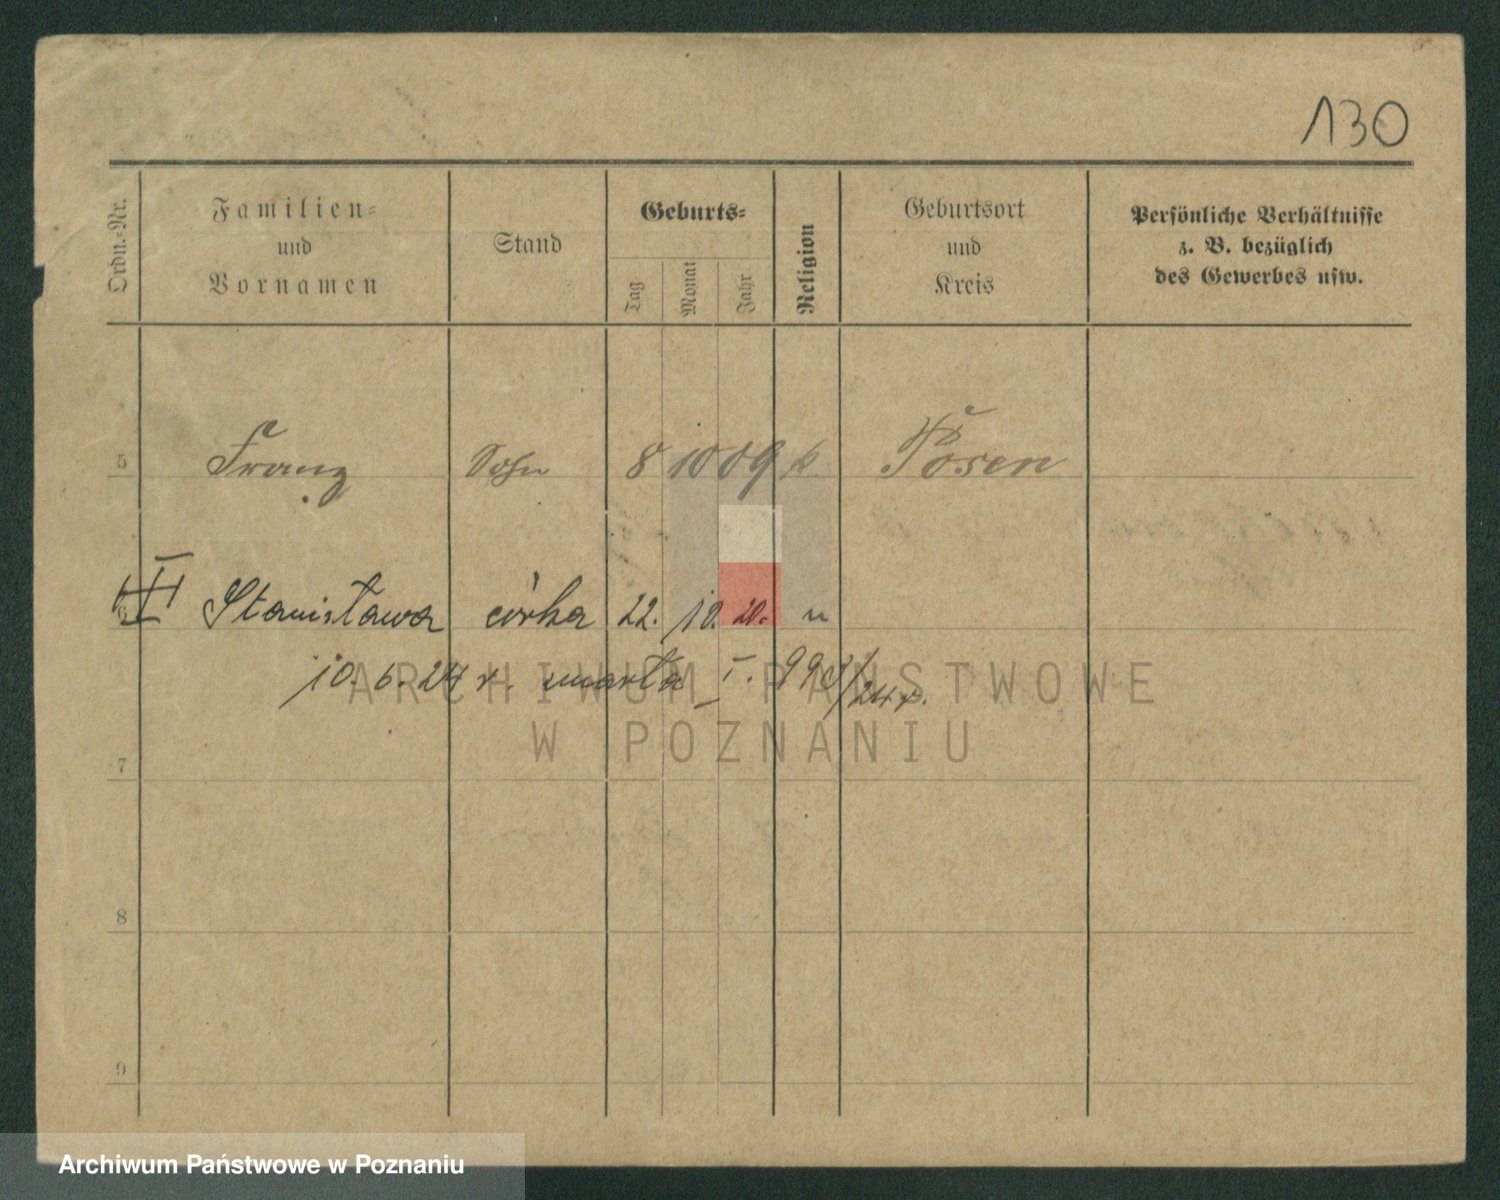 130
Ordn.=Nr.
Familien=
und
Vornamen
Stand
Geburts=
Tag
Monat
Jahr
Religion
Geburtsort
und
Kreis
Persönliche Verhältnisse
z. B. bezüglich
des Gewerbes usw.
5 Franz Sohn 8 10 09 k Posen
6 Stanisława córka 22. 10. 20. "
10. 6. 24 r. umarła I. 24 r.
7
8
9
ARCHIWUM PAŃSTWOWE
W POZNANIU
Archiwum Państwowe w Poznaniu